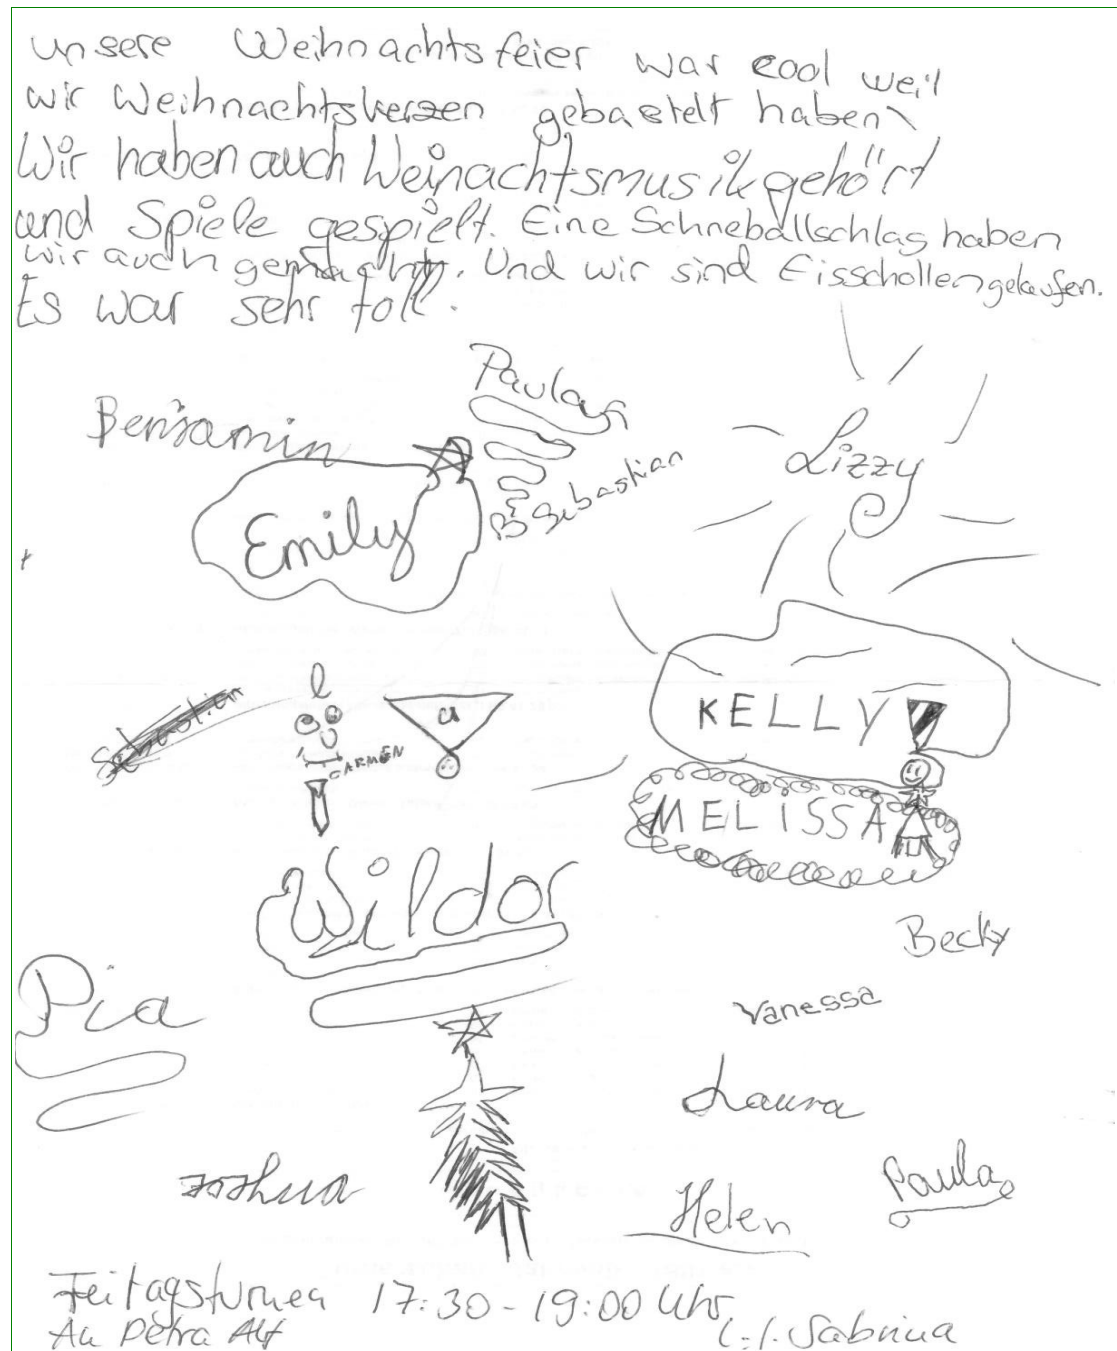 unsere Weihnachtsfeier war cool weil
wir Weihnachtskerzen gebastelt haben
Wir haben auch Weinachtsmusik gehört
und Spiele gespielt. Eine Schneballschlag haben
wir auch gemacht. Und wir sind Eisschollen gelaufen.
Es war sehr toll.
Paula
Benjamin
Lizzy
Sebastian
Emily
Sebastian
KELLY
CARMEN
MELISSA
Wildor
Becky
Pia
Vanessa
Laura
Joshua
Helen
Paula
Feitagsturnen 17:30-19:00 Uhr
An Petra Alf
Sabrina